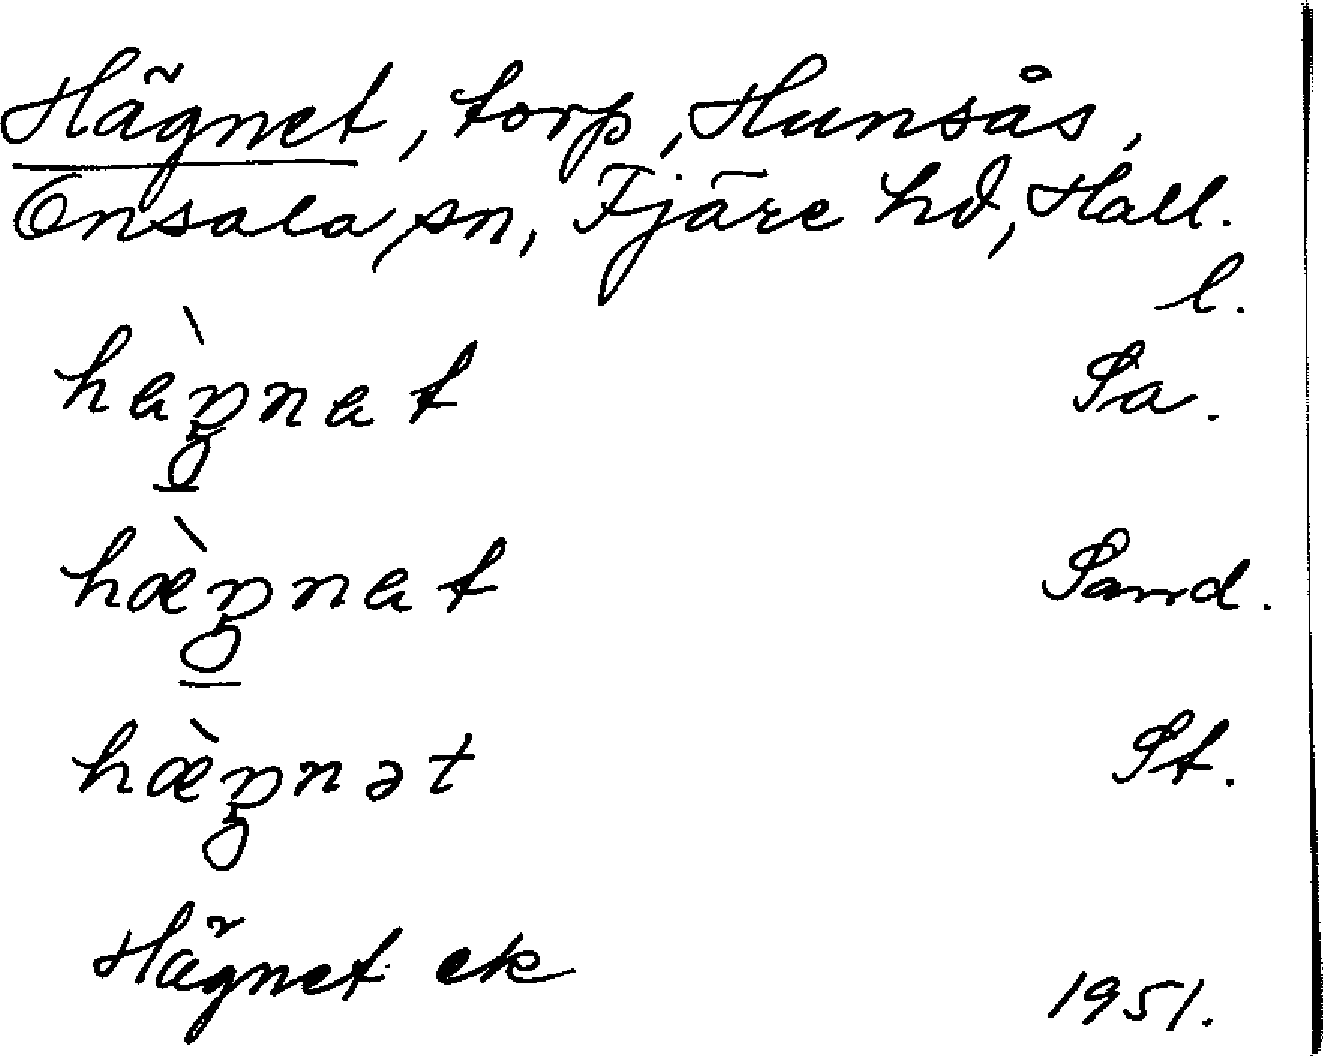 Hägnet, torp, Hunsås,
Onsala sn, Fjäre hd, Hall.
l.
hàŋnat Sa.
hæ̀ŋnat Sand.
hæ̀ŋnət St.
Hägnet ek 1951.